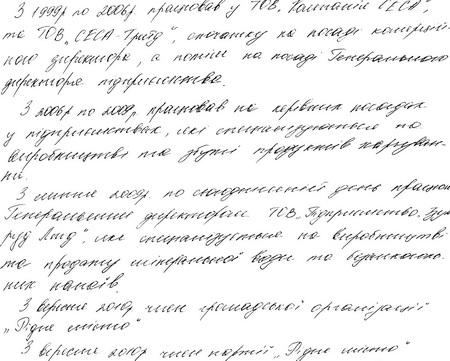 З 1999р по 2006р. працював у ТОВ „Компанія СЕСА"
та ТОВ „СЕСА-Трейд", спочатку на посаді комерцій-
ного директора, а потім на посаді Генерального
директора підприємства.
З 2006р по 2009р. працював на керівних посадах
у підприємствах, які спеціалізуються на
виробництві та збуті продуктів харчуван-
ня.
З липня 2009р. по сьогоднішній день працюю
Генеральним директором ТОВ „Підприємство,
Лтд", яке спеціалізується на виробництві
та продажу мінеральної води та безалкоголь-
них напоїв.
З вересня 2010р. член громадської організації
„Рідне місто"
З вересня 2010р член партії „Рідне місто"